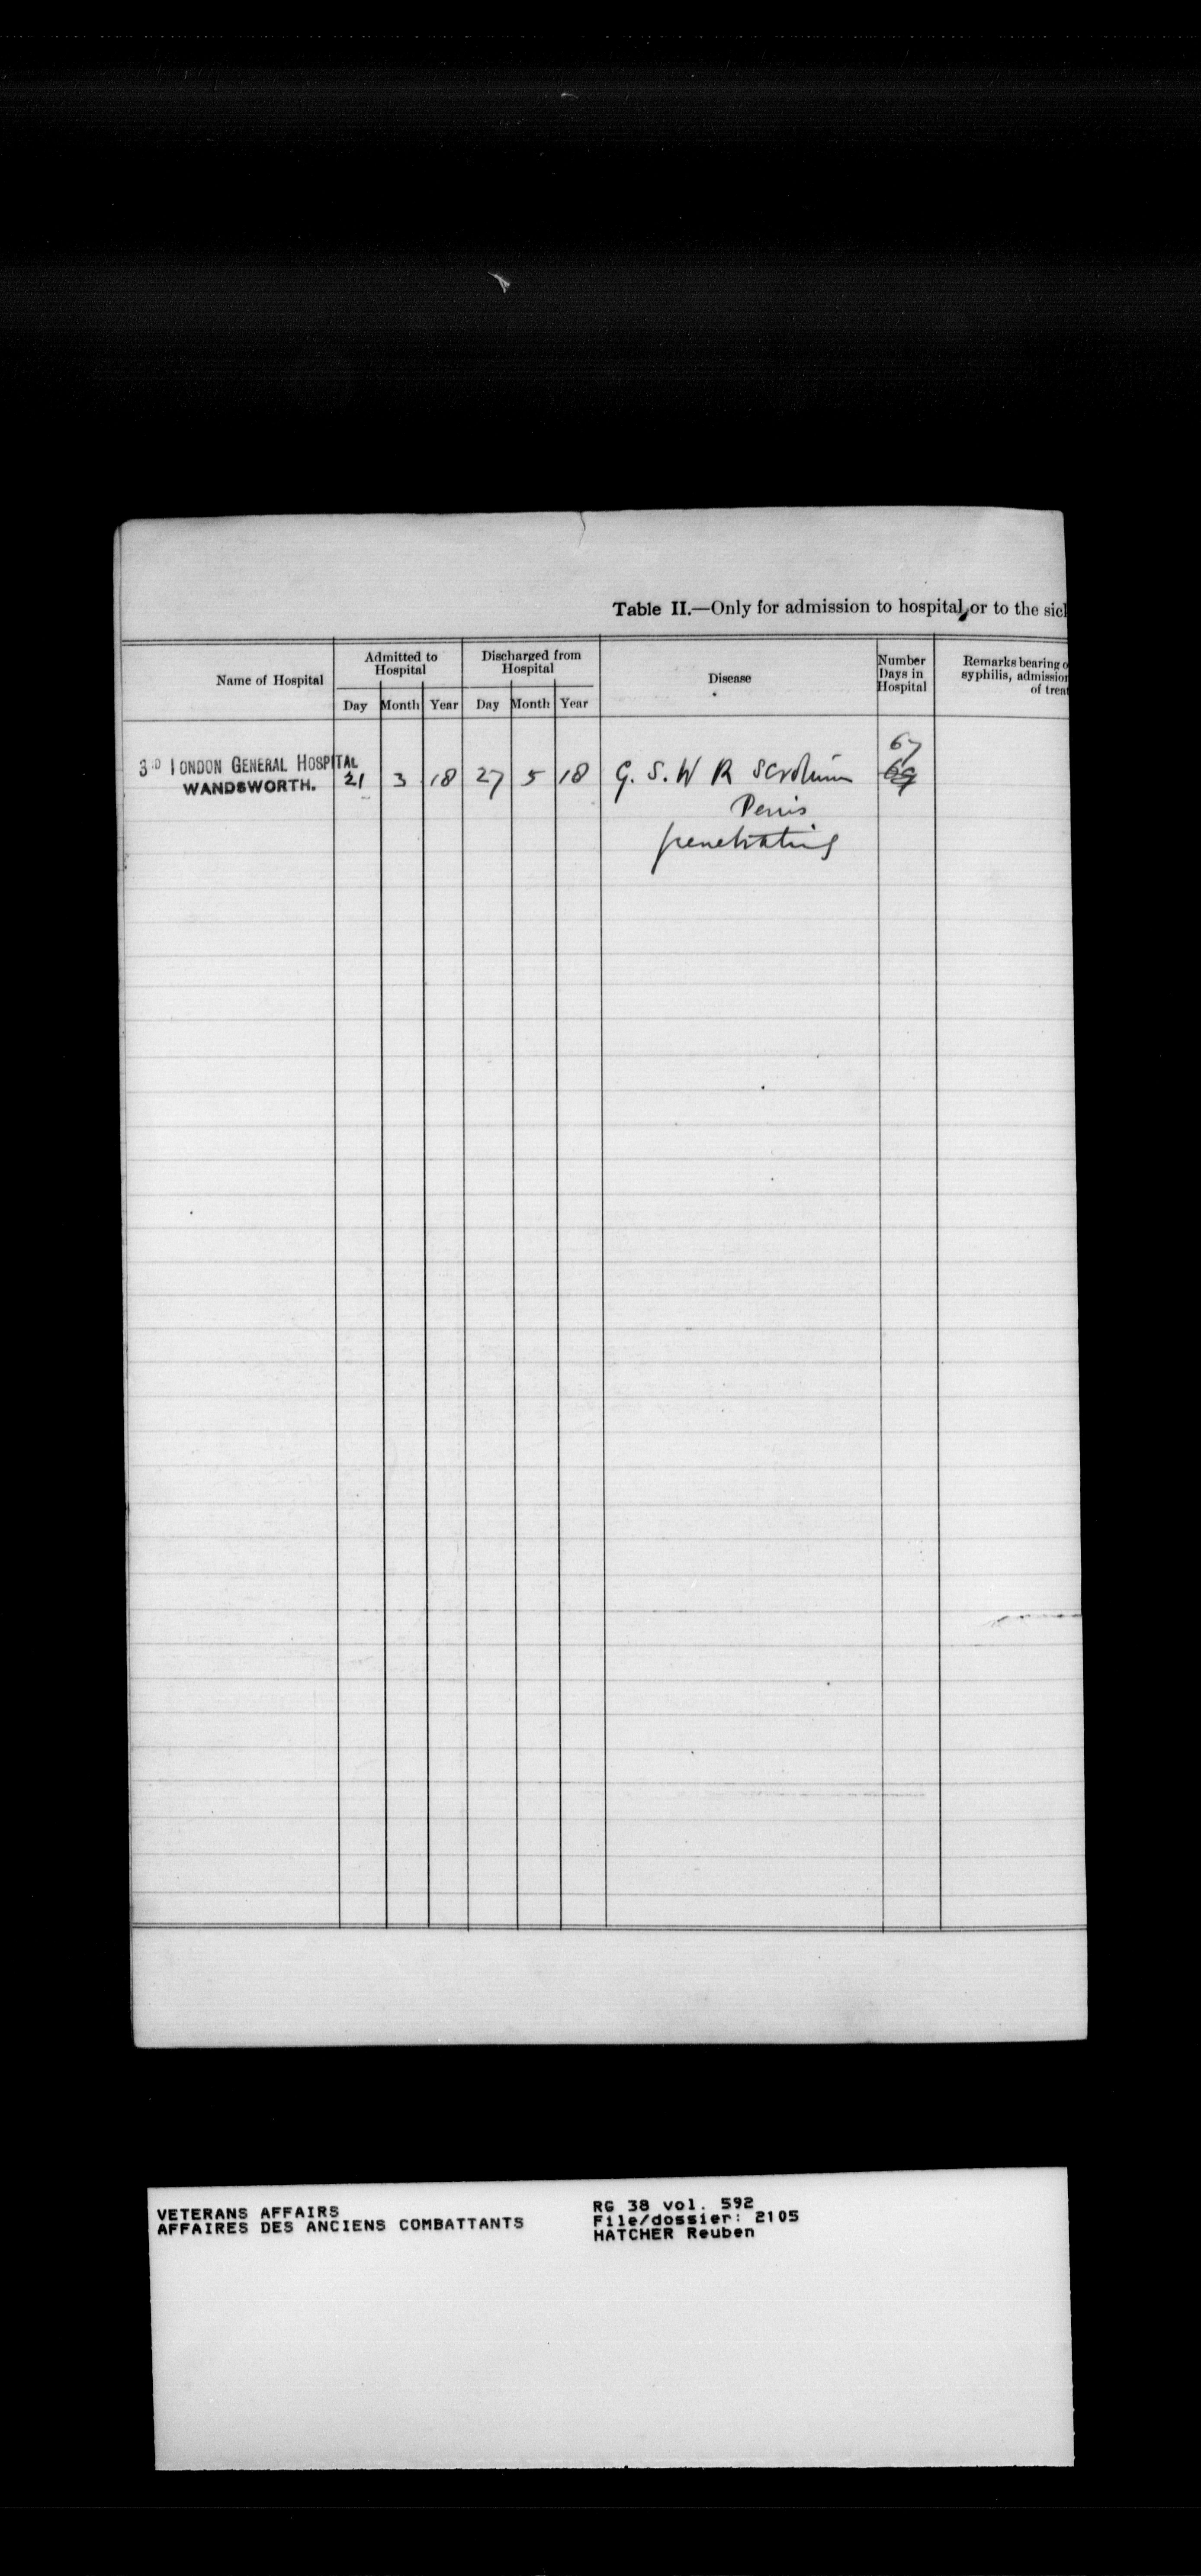 Table II.—Only for admission to hospital, or to the sick
Name of Hospital
Admitted to
Hospital
Day Month Year
Discharged from
Hospital
Day Month Year
Disease
Number
Days in
Hospital
Remarks bearing o
syphilis, admission
of treat
3RD LONDON GENERAL HOSPITAL
WANDSWORTH.
21 3 18 27 5 18 G. S. W R Scrotum
Penis
penetrating
67
69
VETERANS AFFAIRS
AFFAIRES DES ANCIENS COMBATTANTS
RG 38 vol. 592
File/dossier: 2105
HATCHER Reuben